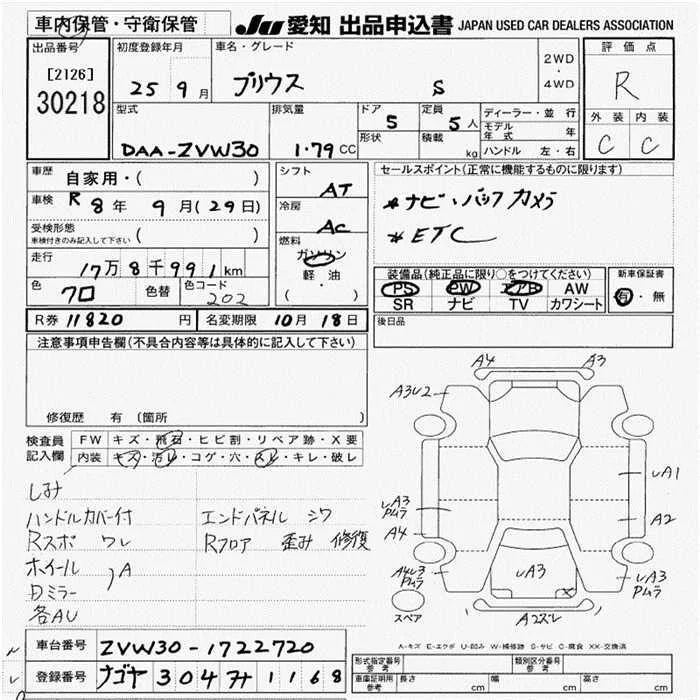 車内保管・守衛保管
JU 愛知 出品申込書 JAPAN USED CAR DEALERS ASSOCIATION
出品番号
[2126]
30218
初度登録年月
25 9 月
車名・グレード
プリウス S
2WD
・
4WD
評価点
R
外装 内装
C C
型式
DAA-ZVW30
排気量
1.79 CC
ドア
5
形状
定員
5 人
積載
kg
ディーラー・並行
モデル年式 年
ハンドル 左・右
車歴
自家用・( )
車検 R 8年 9月(29日)
受検形態
車検付きのみ記入して下さい ( )
走行
17万8千991km
色
クロ
色替
色コード
202
シフト
AT
冷房
AC
燃料
ガソリン
軽・油
( )
セールスポイント(正常に機能するものに限ります)
*ナビ・バックカメラ
*ETC
装備品(純正品に限り○をつけてください)
PS PW エアB AW
SR ナビ TV カワシート
新車保証書
有・無
R券 11820 円
名変期限 10月18日
後日品
注意事項申告欄(不具合内容等は具体的に記入して下さい)
修復歴 有 (箇所 )
検査員
記入欄
FW キズ・飛石・ヒビ割・リペア跡・X要
内装 キズ・汚レ・コゲ・穴・スレ・キレ・破レ
しみ
ハンドルカバー付
Rスポ ワレ
ホイール
Dミラー
A
各AU
エンドパネル シワ
Rフロア 歪み 修復
A4 A3
A3U2
UA1
UA3
Pムラ
A4
A2
A4U3
Pムラ
UA3
UA3
Pムラ
スペア
A2ズレ
A-キズ E-エクボ U-凹み W-補修跡 S-サビ C-腐食 XX-交換済
車台番号 ZVW30-1722720
登録番号 ナゴヤ 304 モ 1168
形式指定番号
参考
類別区分番号
参考
車庫証明用
参考
長さ cm
幅 cm
高さ cm